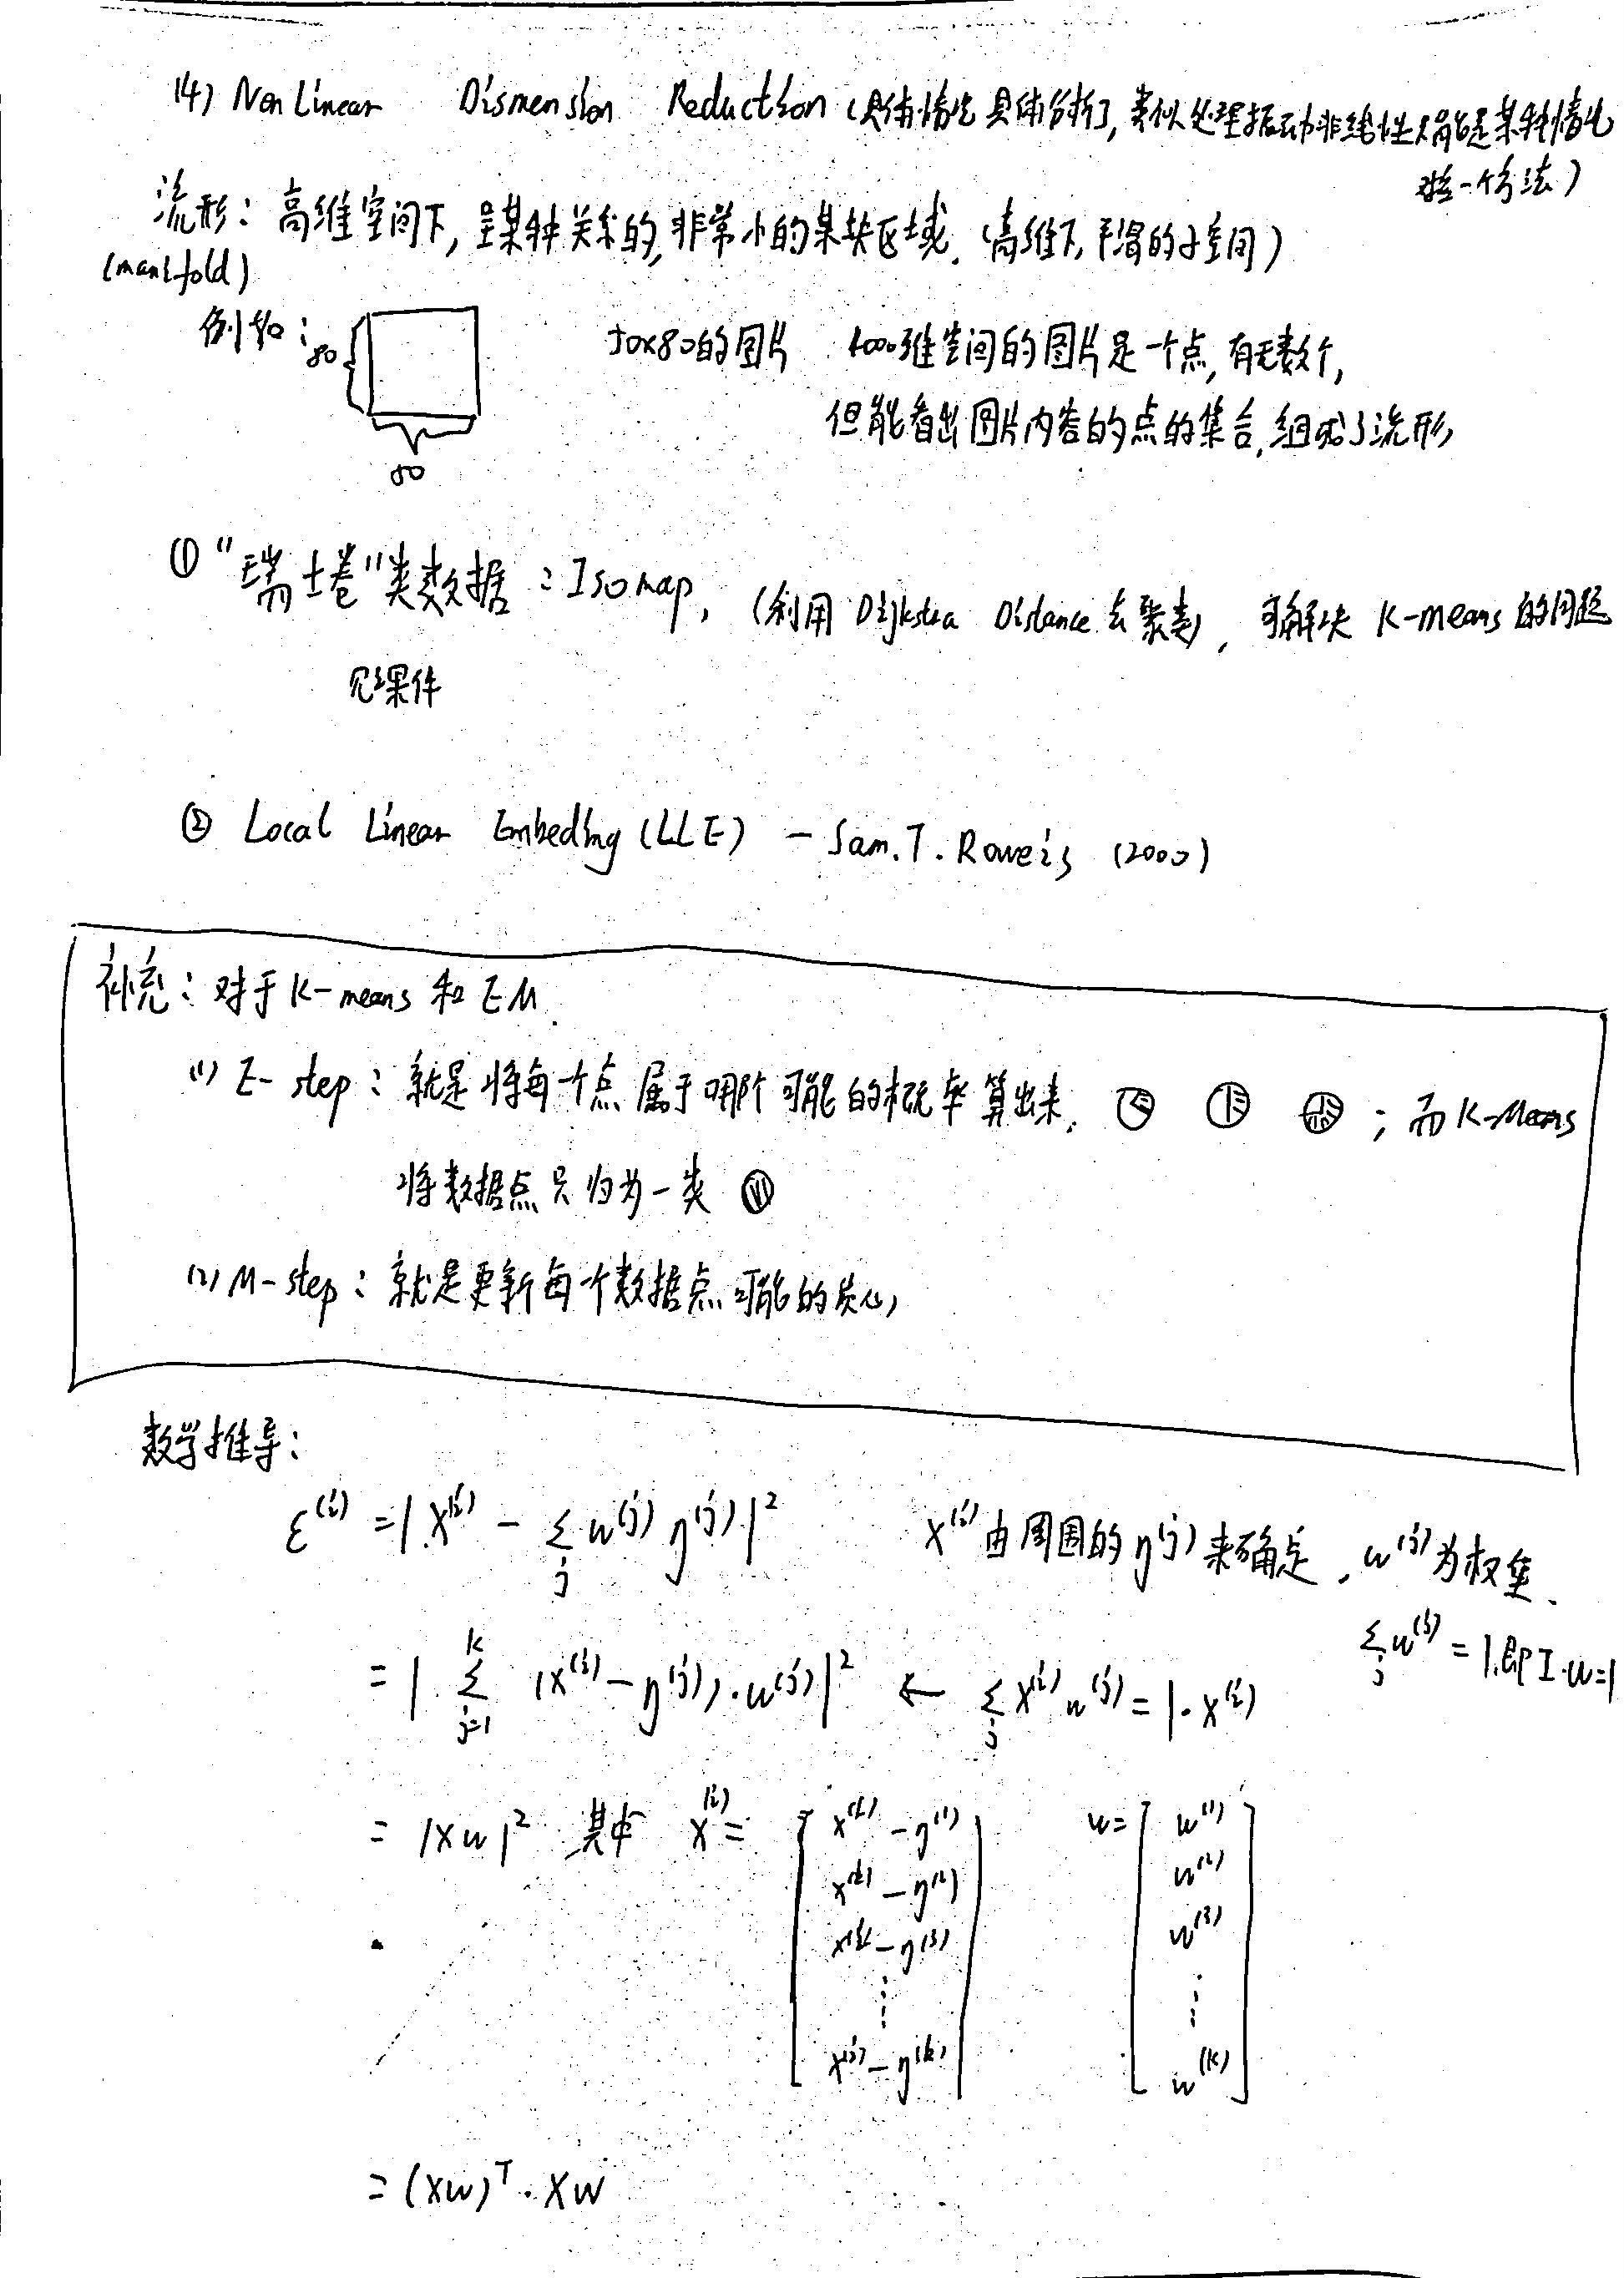 (4) Non Linear Dismension Reduction (具体情况具体分析, 类似处理振动非线性只能是某种情况
一个方法)
流形: 高维空间下, 呈某种关系的, 非常小的某块区域. (高维下, 平滑的子空间)
(manifold)
例如: 80 50
50×80的图片 4000维空间的图片是一个点, 有无数个,
但能看出图片内容的点的集合, 组成了流形
① "瑞士卷"类数据: Isomap, (利用 Dijkstra Distance 去聚类), 可解决 K-means 的问题
见课件
② Local Linear Embeding (LLE) - Sam. T. Roweis (2000)
补充: 对于 K-means 和 EM.
(1) E-step: 就是将每个点属于哪个可能的概率算出来. ; 而 K-Means
将数据点只归为一类
(2) M-step: 就是更新每个数据点可能的质心,
数学推导:
ε^(i) = |X^(i) - Σ_j w^(j) η^(j)|² X^(i) 由周围的 η^(j) 来确定, w^(j) 为权重.
Σ_j w^(j) = 1. 即 I·w=1
= |Σ_{j=1}^{k} (x^(i) - η^(j))·w^(j)|² ← Σ_j X^(i) w^(j) = 1·X^(i)
= |Xw|² 其中 X^(i) = [x^(i) - η^(1) x^(i) - η^(2) x^(i) - η^(3) ⋮ x^(i) - η^(k)] w = [w^(1) w^(2) w^(3) ⋮ w^(k)]
= (Xw)^T · Xw